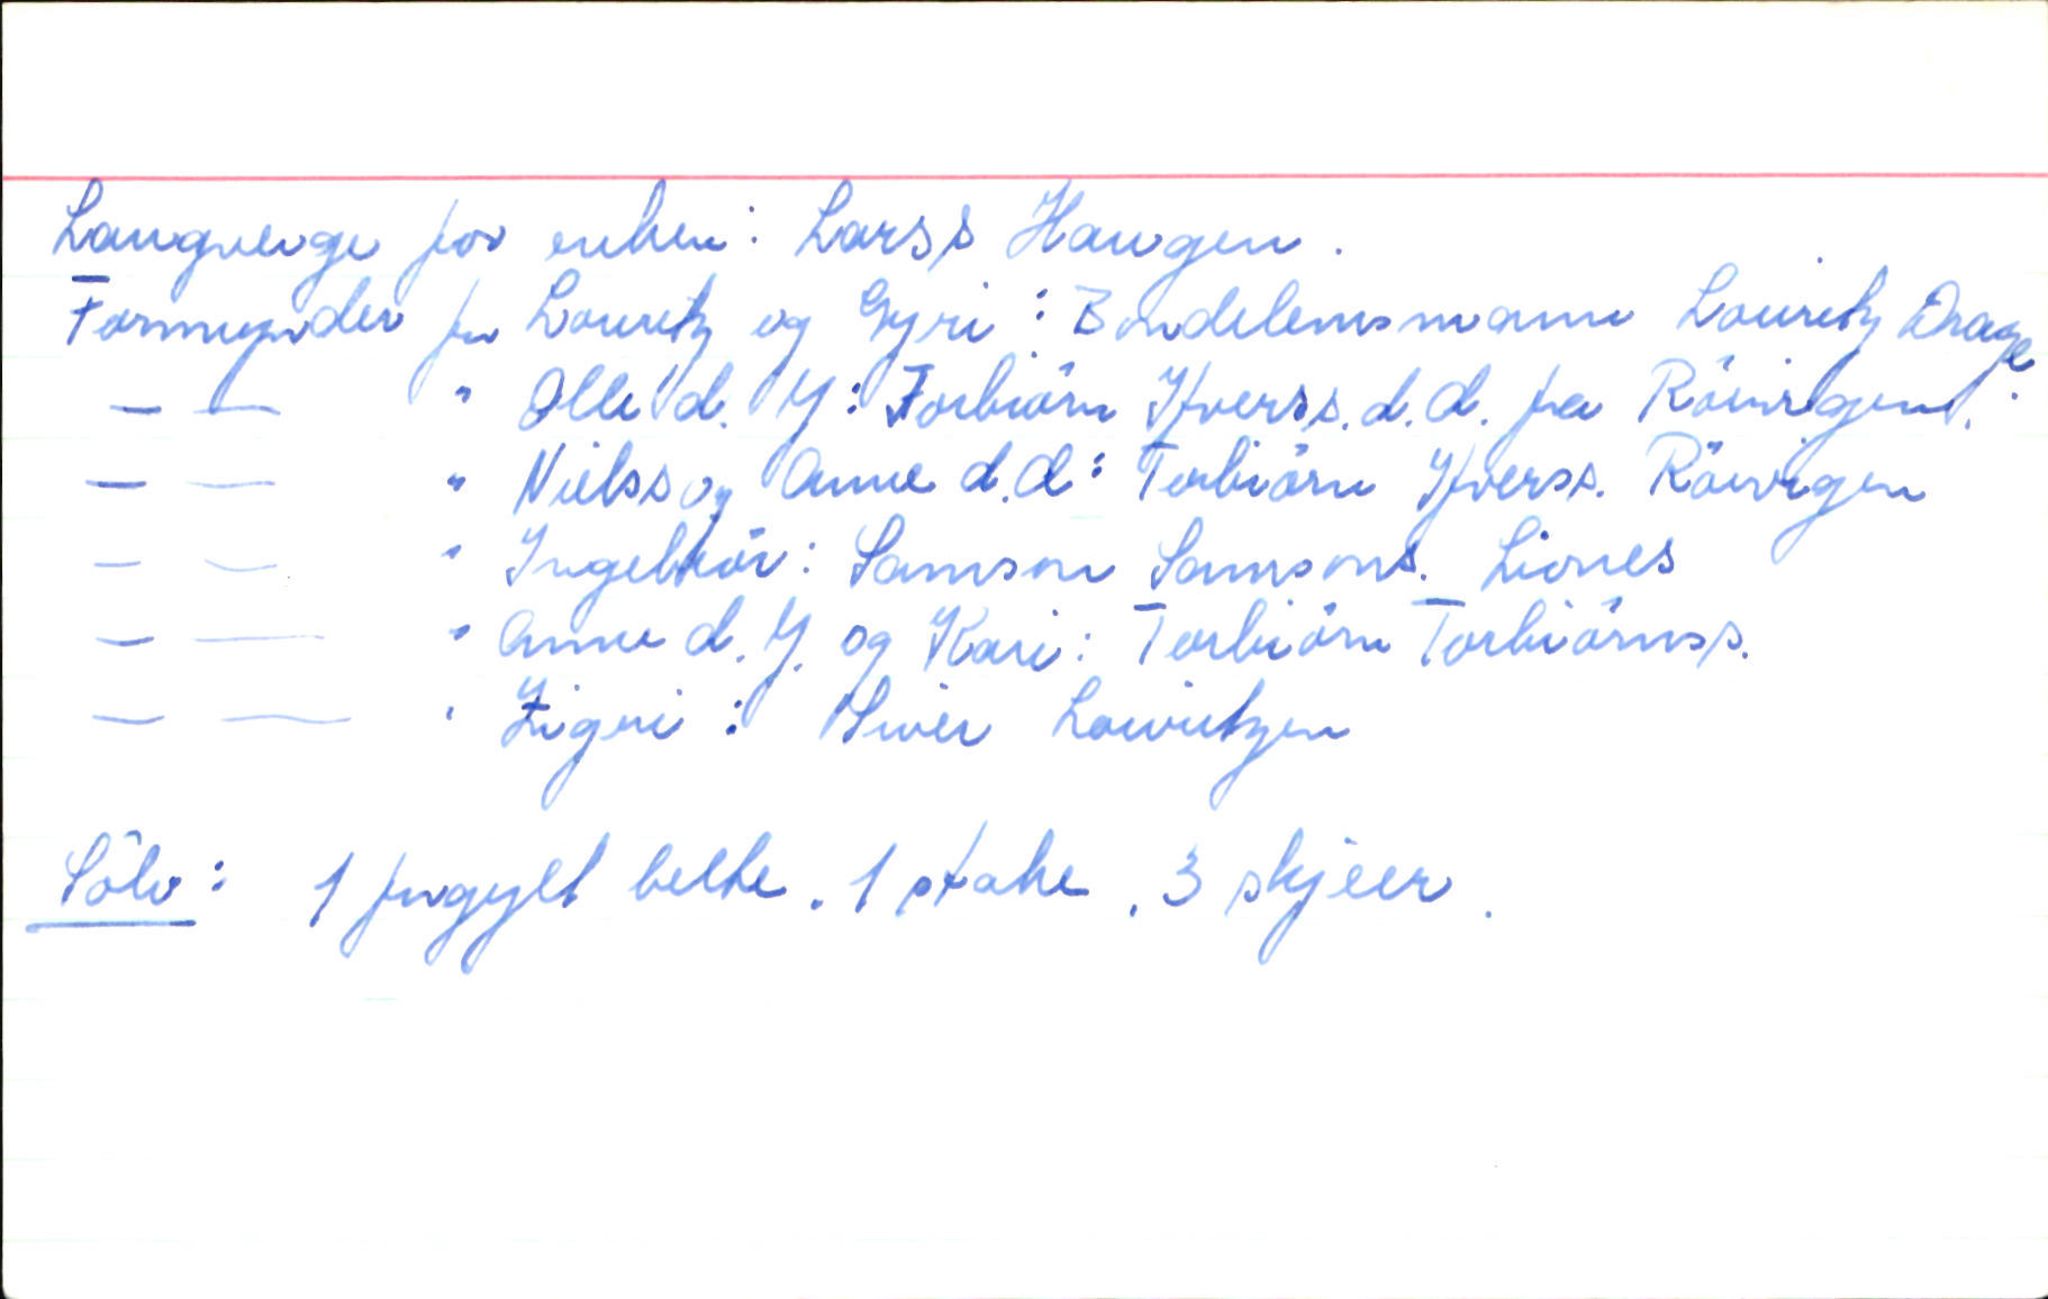 Laugverge for enken: Larss Haugen.
Formynder for Lauritz og Gyri: Bondelensmann Lauritz Drage.
— — " Olle d. Y: Torbiörn Ifverss. d.d. fra Röivigen.
— — " Nielss og Anne d.d: Torbiörn Ifverss. Röivigen
— — " Ingebiör: Samson Samsons. Liones
— — " Anne d. Y. og Kari: Torbiörn Torbiörnss.
— — " Zigri: Siver Lauritzen
Sölv: 1 forgylt belte. 1 stake. 3 skjeer.